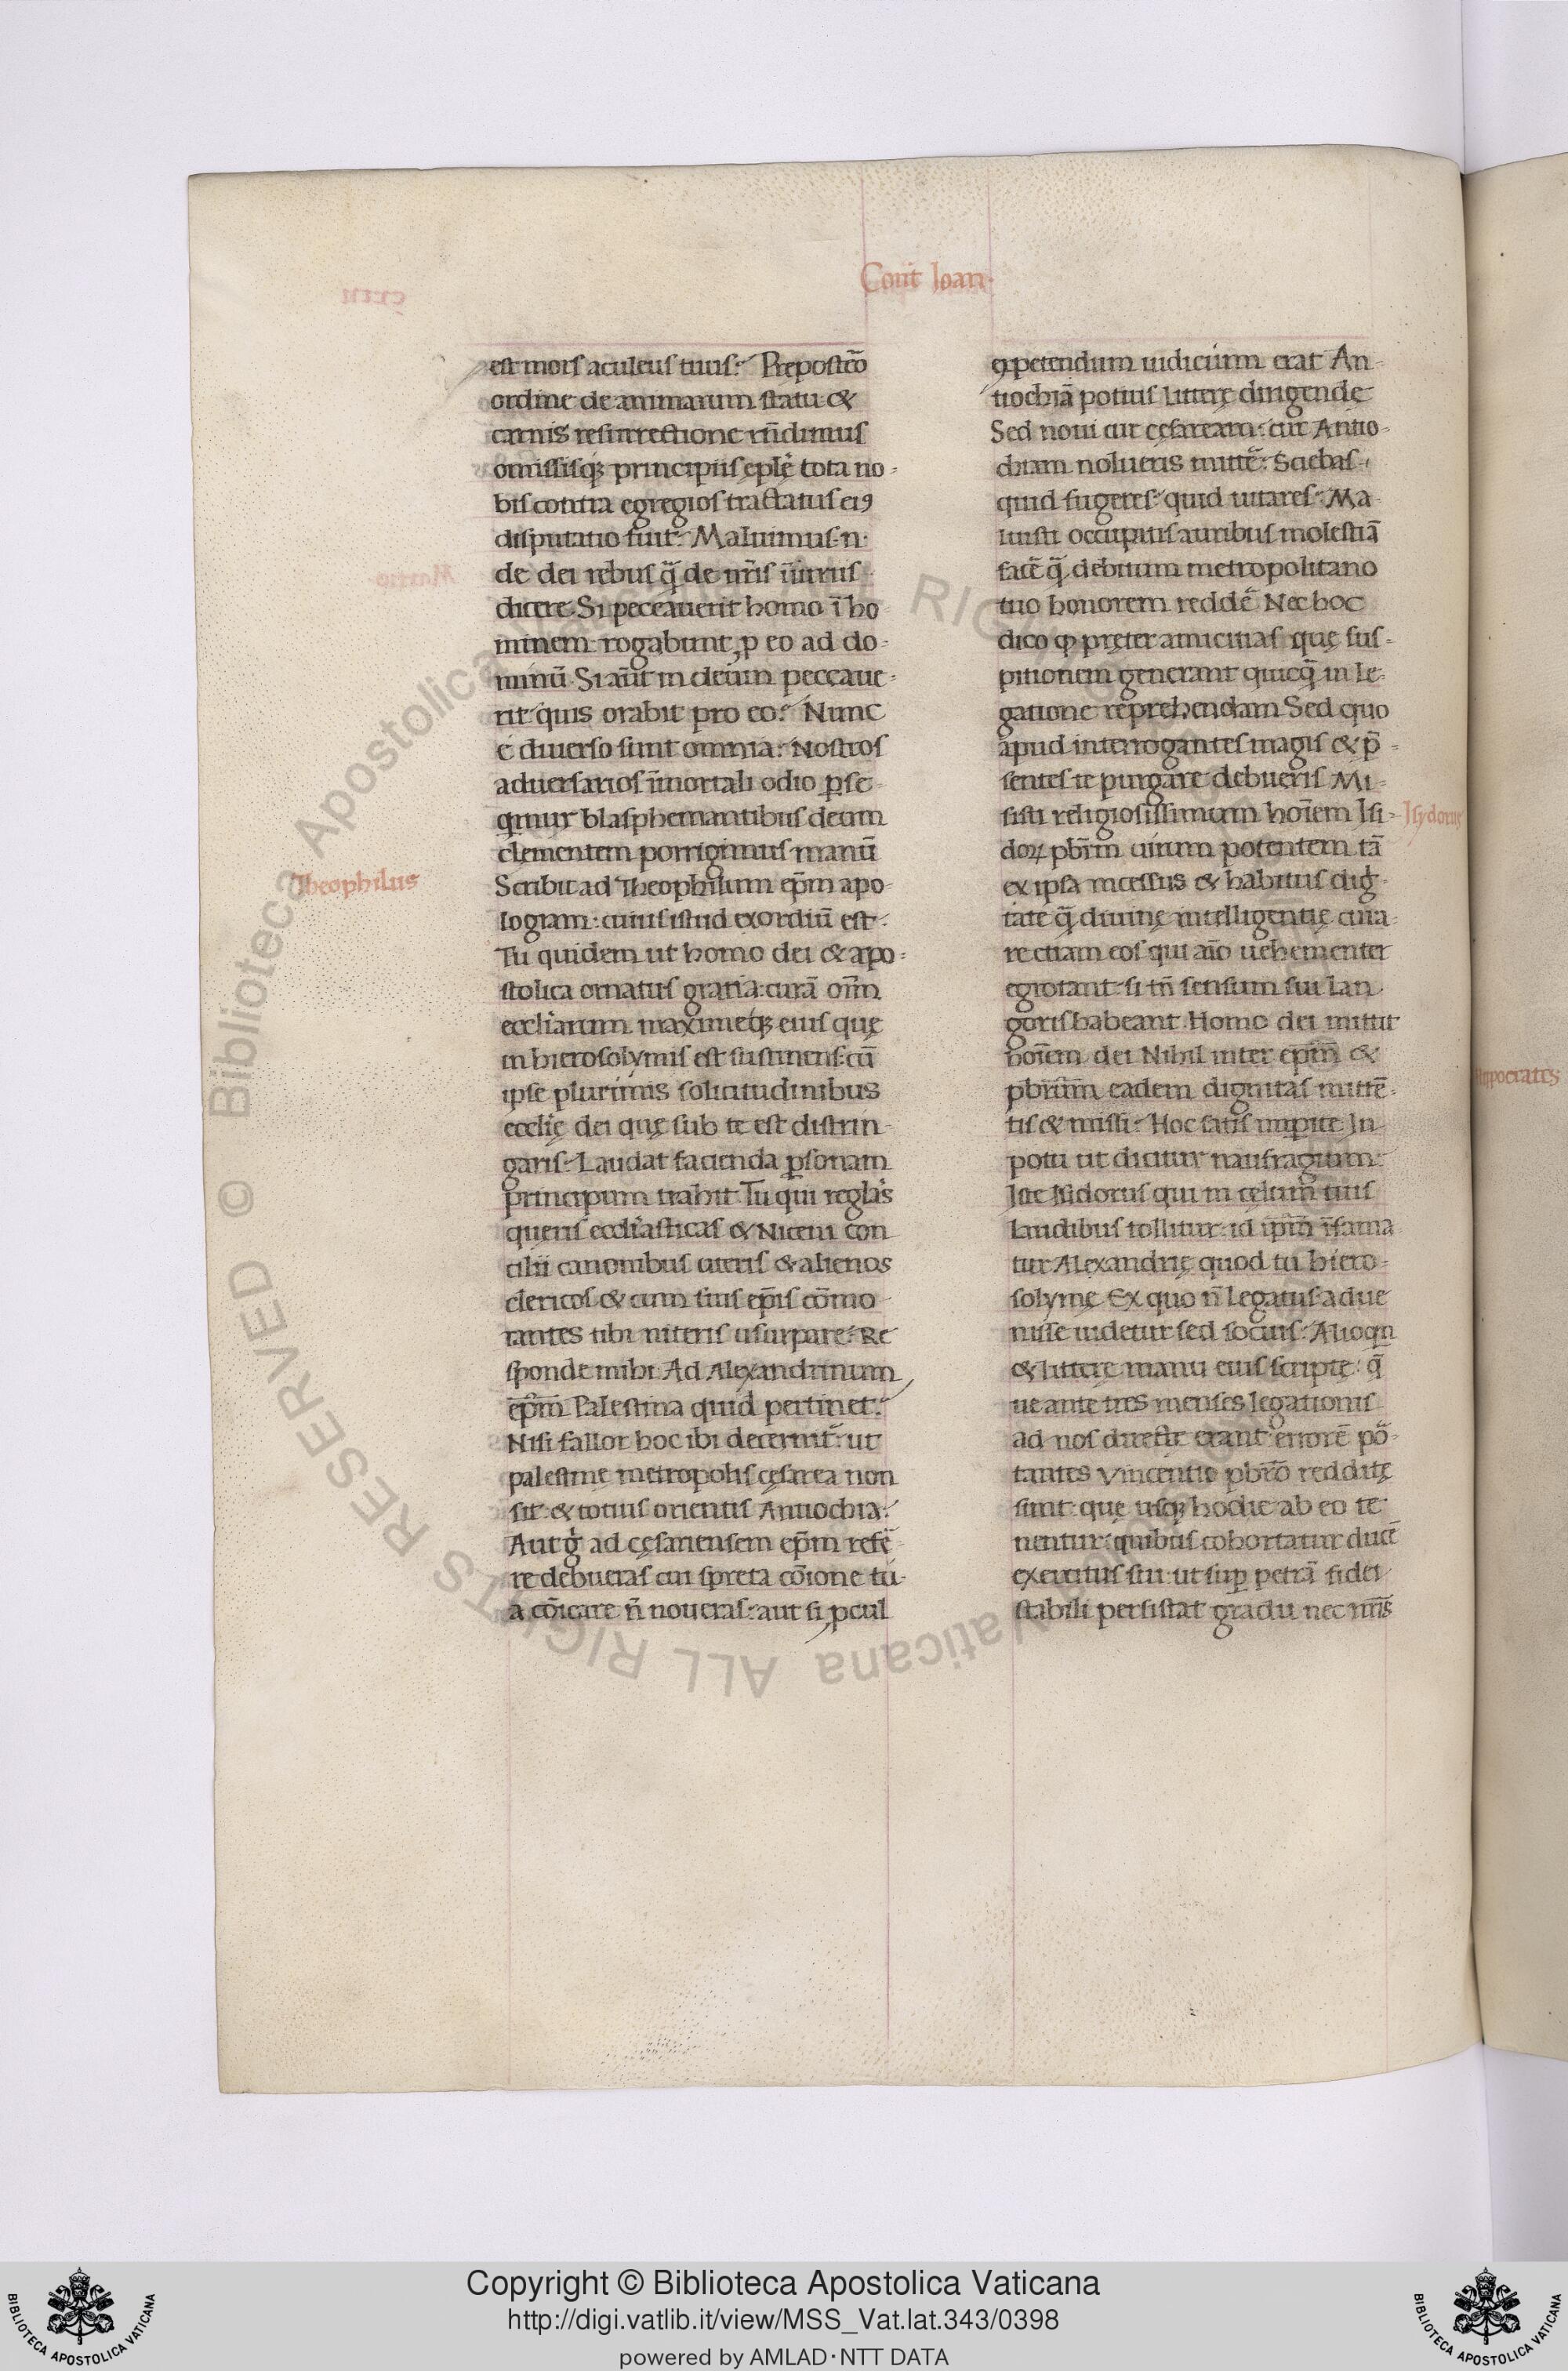 Cont̄ Ioan·
est mors aculeus tuus? Prepostero᷑
ordine de animarum statu &
carnis resurrectione rn̄dimus
omissisq; principiis eplę tota no-
bis contra egregios tractatus ei9
disputatio fuit. Maluimus·n·
de dei rebus q̄ de nr̄is iniuriis
dicere. Si peccauerit homo ī ho
minem· rogabunt ꝓ eo ad do-
minū. Si aūt in deum peccaue-
rit quis orabit pro eo? Nunc
e diuerso sunt omnia. Nostros
aduersarios īmortali odio ꝑse-
qmur blasphemantibus deum
clementem porrigimus manū
Theophilus
Scribit ad Theophilum ep̄m apo-
logiam: cuius istud exordiū est.
Tu quidem ut homo dei & apo-
stolica ornatus gratia: curā om̄m
eccliarum maximeq; eius quę
in hierosolymis est sustinens: cū
ipse plurimis solicitudinibus
ecclię dei quę sub te est distrin-
garis. Laudat facienda ꝑsonam
principum trahit. Tu qui reglas
queris eccliasticas & Niceni con
cilii canonibus uteris & alienos
clericos & cum suis ep̄is cōmo
rantes tibi niteris usurpare: Re
sponde mihi. Ad Alexandrinum
ep̄m Palestina quid pertinet?
Nisi fallor hoc ibi decernit᷑: ut
palestine metropolis cęsarea non
sit: & totius orientis Antiochia.
Aut g̊ ad cęsariensem ep̄m refe-
re debueras cui spreta cōione tu-
a cōicare n̄ noueras: aut si ꝓcul
expetendum iudicium erat An-
tiochiā potius litterę dirigende
Sed noui cur cęsaream: cur Antio-
chiam nolueris mitte᷑. Sciebas
quid fugeres: quid uitares. Ma
luisti occupatis auribus molestiā
face᷑ q̄ debitum metropolitano
tuo honorem redde᷑. Nec hoc
dico ꝙ pręter amicitias quę sus-
pitionem generant quicq̄ in le-
gatione reprehendam Sed quo
apud interrogantes magis & p̄-
sentes te purgare debueris. Mi-
sisti religiosissimum hoīem Isi-
Isydorus
dorꝝ pbr̄m uirum potentem tā
ex ipsa incessus & habitus dig-
tate q̄ diuinę intelligentię cura-
re etiam eos qui aīo uehementer
egrotant: si tn̄ sensum sui lan
goris habeant. Homo dei mittit
hoīem dei. Nihil inter ep̄m̄ &
pbr̄um̄ eadem dignitas mittē-
tis & missi. Hoc satis impite. In
potu ut dicitur naufragium.
Iste Isidorus qui in cęlum tuis
laudibus tollitur: id ip̄m̄ īsama
tur Alexandrię quod tu hiero-
solymę. Ex quo n̄ legatus adue
nisse uidetur sed socius. Alioqn
& litterę manu eius scriptę: q̄
ue ante tres menses legationis
ad nos directę erant errorē po᷑-
tantes Vincentio pbr̄o redditę
sunt: quę usq; hodie ab eo te
nentur: quibus cohortatur ducē
exercitus sui: ut sup̱ petrā fidei
stabili persistat gradu nec nr̄is
Hyppocrates
Copyright © Biblioteca Apostolica Vaticana
http://digi.vatlib.it/view/MSS_Vat.lat.343/0398
powered by AMLAD·NTT DATA
© Biblioteca Apostolica Vaticana ALL RIGHTS RESERVED
BIBLIOTECA APOSTOLICA VATICANA
BIBLIOTECA APOSTOLICA VATICANA